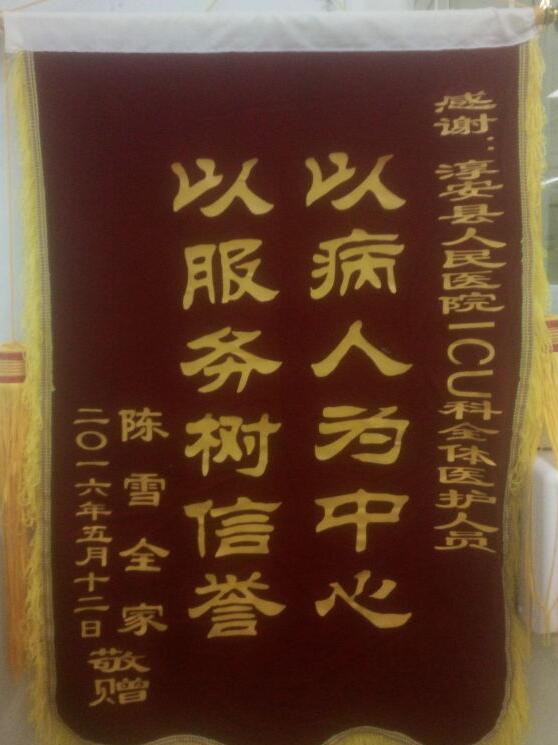 感谢：淳安县人民医院ICU科全体医护人员
以病人为中心
以服务树信誉
陈雪全家
二〇一六年五月十二日
敬赠